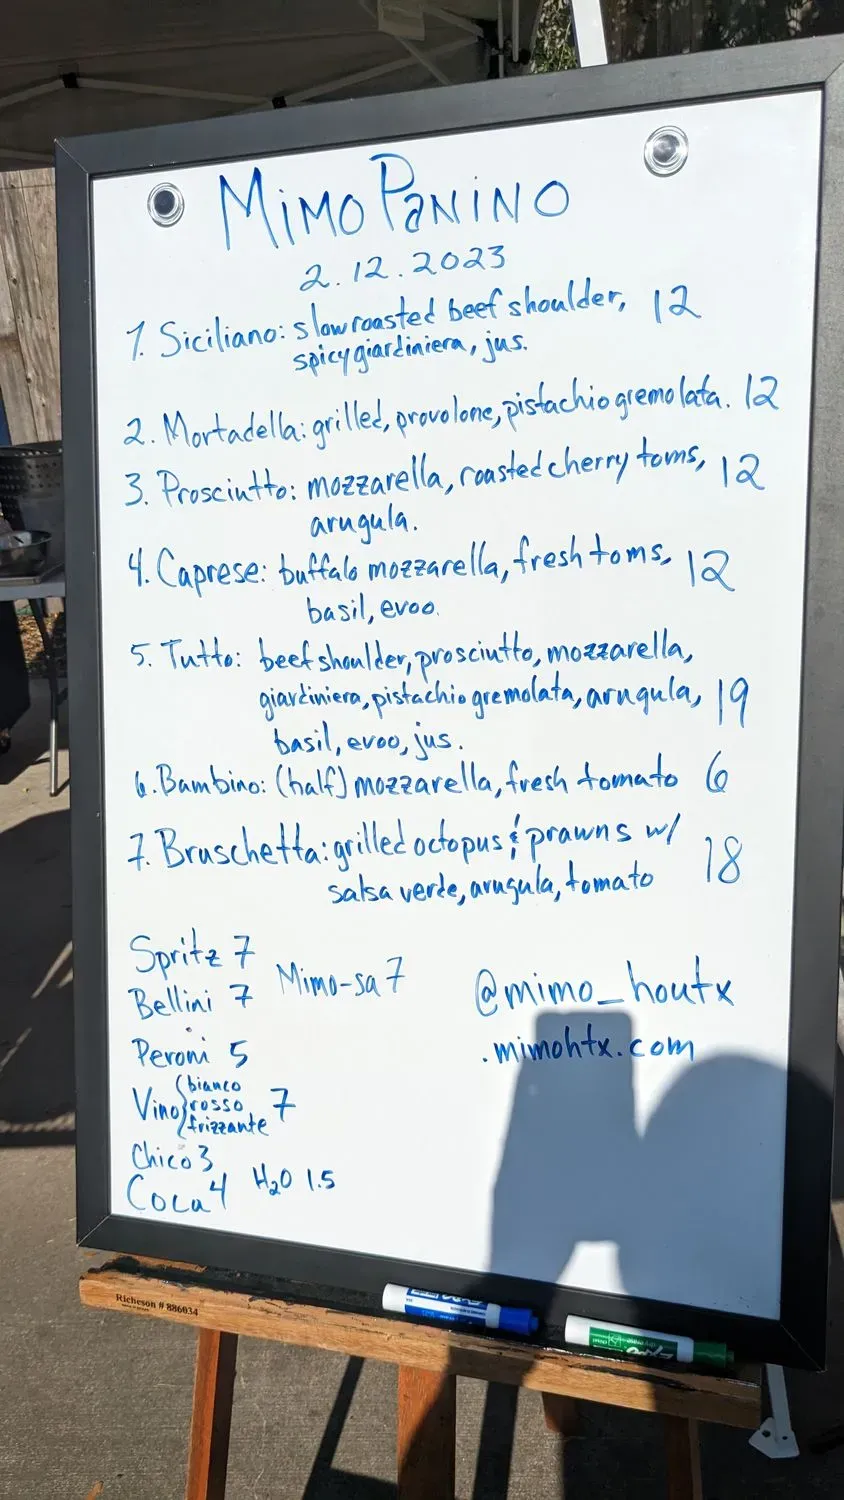 MIMO PANINO
2.12.2023
1. Siciliano: slow roasted beef shoulder, 12
spicy giardiniera, jus.
2. Mortadella: grilled, provolone, pistachio gremolata. 12
3. Prosciutto: mozzarella, roasted cherry toms, 12
arugula.
4. Caprese: buffalo mozzarella, fresh toms, 12
basil, evoo.
5. Tutto: beef shoulder, prosciutto, mozzarella,
giardiniera, pistachio gremolata, arugula, 19
basil, evoo, jus.
6. Bambino: (half) mozzarella, fresh tomato 6
7. Bruschetta: grilled octopus & prawns w/ 18
salsa verde, arugula, tomato
Spritz 7
Mimo-sa 7
Bellini 7
Peroni 5
Vino { bianco
rosso 7
frizzante
Chico 3
Coca 4 H₂O 1.5
@mimo_houtx
.mimohtx.com
Richeson # 886034
EXPO